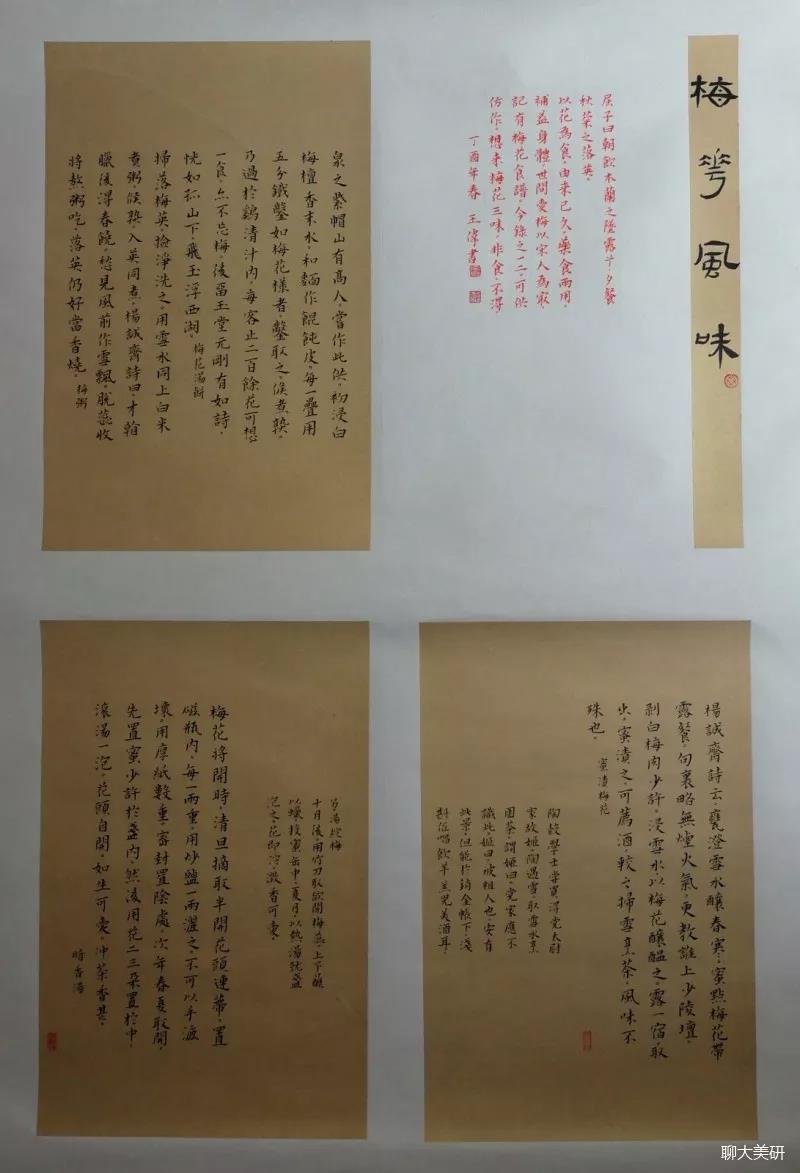 梅花風味
屈子曰朝飲木蘭之墜露兮夕餐
秋菊之落英。
以花為食。由來已久。藥食兩用。
補益身體世間愛梅以宋人為最
記有梅花食譜。今錄之一二。可供
仿作。想來梅花三味。非食。不得
丁酉年春 王偉書
泉之紫帽山有高人。嘗作此供。初浸白
梅檀香末水。和麵作餛飩皮。每一疊用
五分鐵鑿如梅花樣者。鑿取之。候煮熟。
乃過於鷄清汁內。每客止二百餘花可想
一食。亦不忘梅。後留玉堂元剛有如詩。
恍如孤山下。飛玉浮西湖。梅花湯餅
掃落梅英。撿淨洗之。用雪水同上白米
煮粥。候熟。入英同煮。楊誠齋詩曰。才看
臘後得春饒。愁見風前作雪飄。脫蕊收
將熬粥吃。落英仍好當香燒。梅粥
楊誠齋詩云。甕澄雪水釀春寒。蜜點梅花帶
露餐。句裏略無煙火氣。更教誰上少陵壇。
剝白梅肉少許。浸雪水以梅花釀醞之。露一宿取
出。蜜漬之。可薦酒。較之掃雪烹茶。風味不
殊也。 蜜漬梅花
陶穀學士嘗買得党太尉
家故姬。陶遇雪。取雪水烹
團茶。謂姬曰。党家應不
識此。姬曰。彼粗人也。安有
此景。但能於銷金帳下。淺
斟低唱飲羊羔兒美酒耳。
又湯綻梅
十月後。用竹刀取欲開梅蕊。上下蘸
以蠟投蜜缶中。夏月。以熱湯就盞
泡之。花即綻。澂香可愛。
梅花將開時。清旦摘取半開花頭連蒂。置
磁瓶內。每一兩重。用炒鹽一兩灑之。不可以手漉
壞。用厚紙數重。密封置陰處。次年春夏取開。
先置蜜少許於盞內。然後用花二三朵置於中。
滾湯一泡。花頭自開。如生可愛。沖茶香甚。
暗香湯
聊大美研